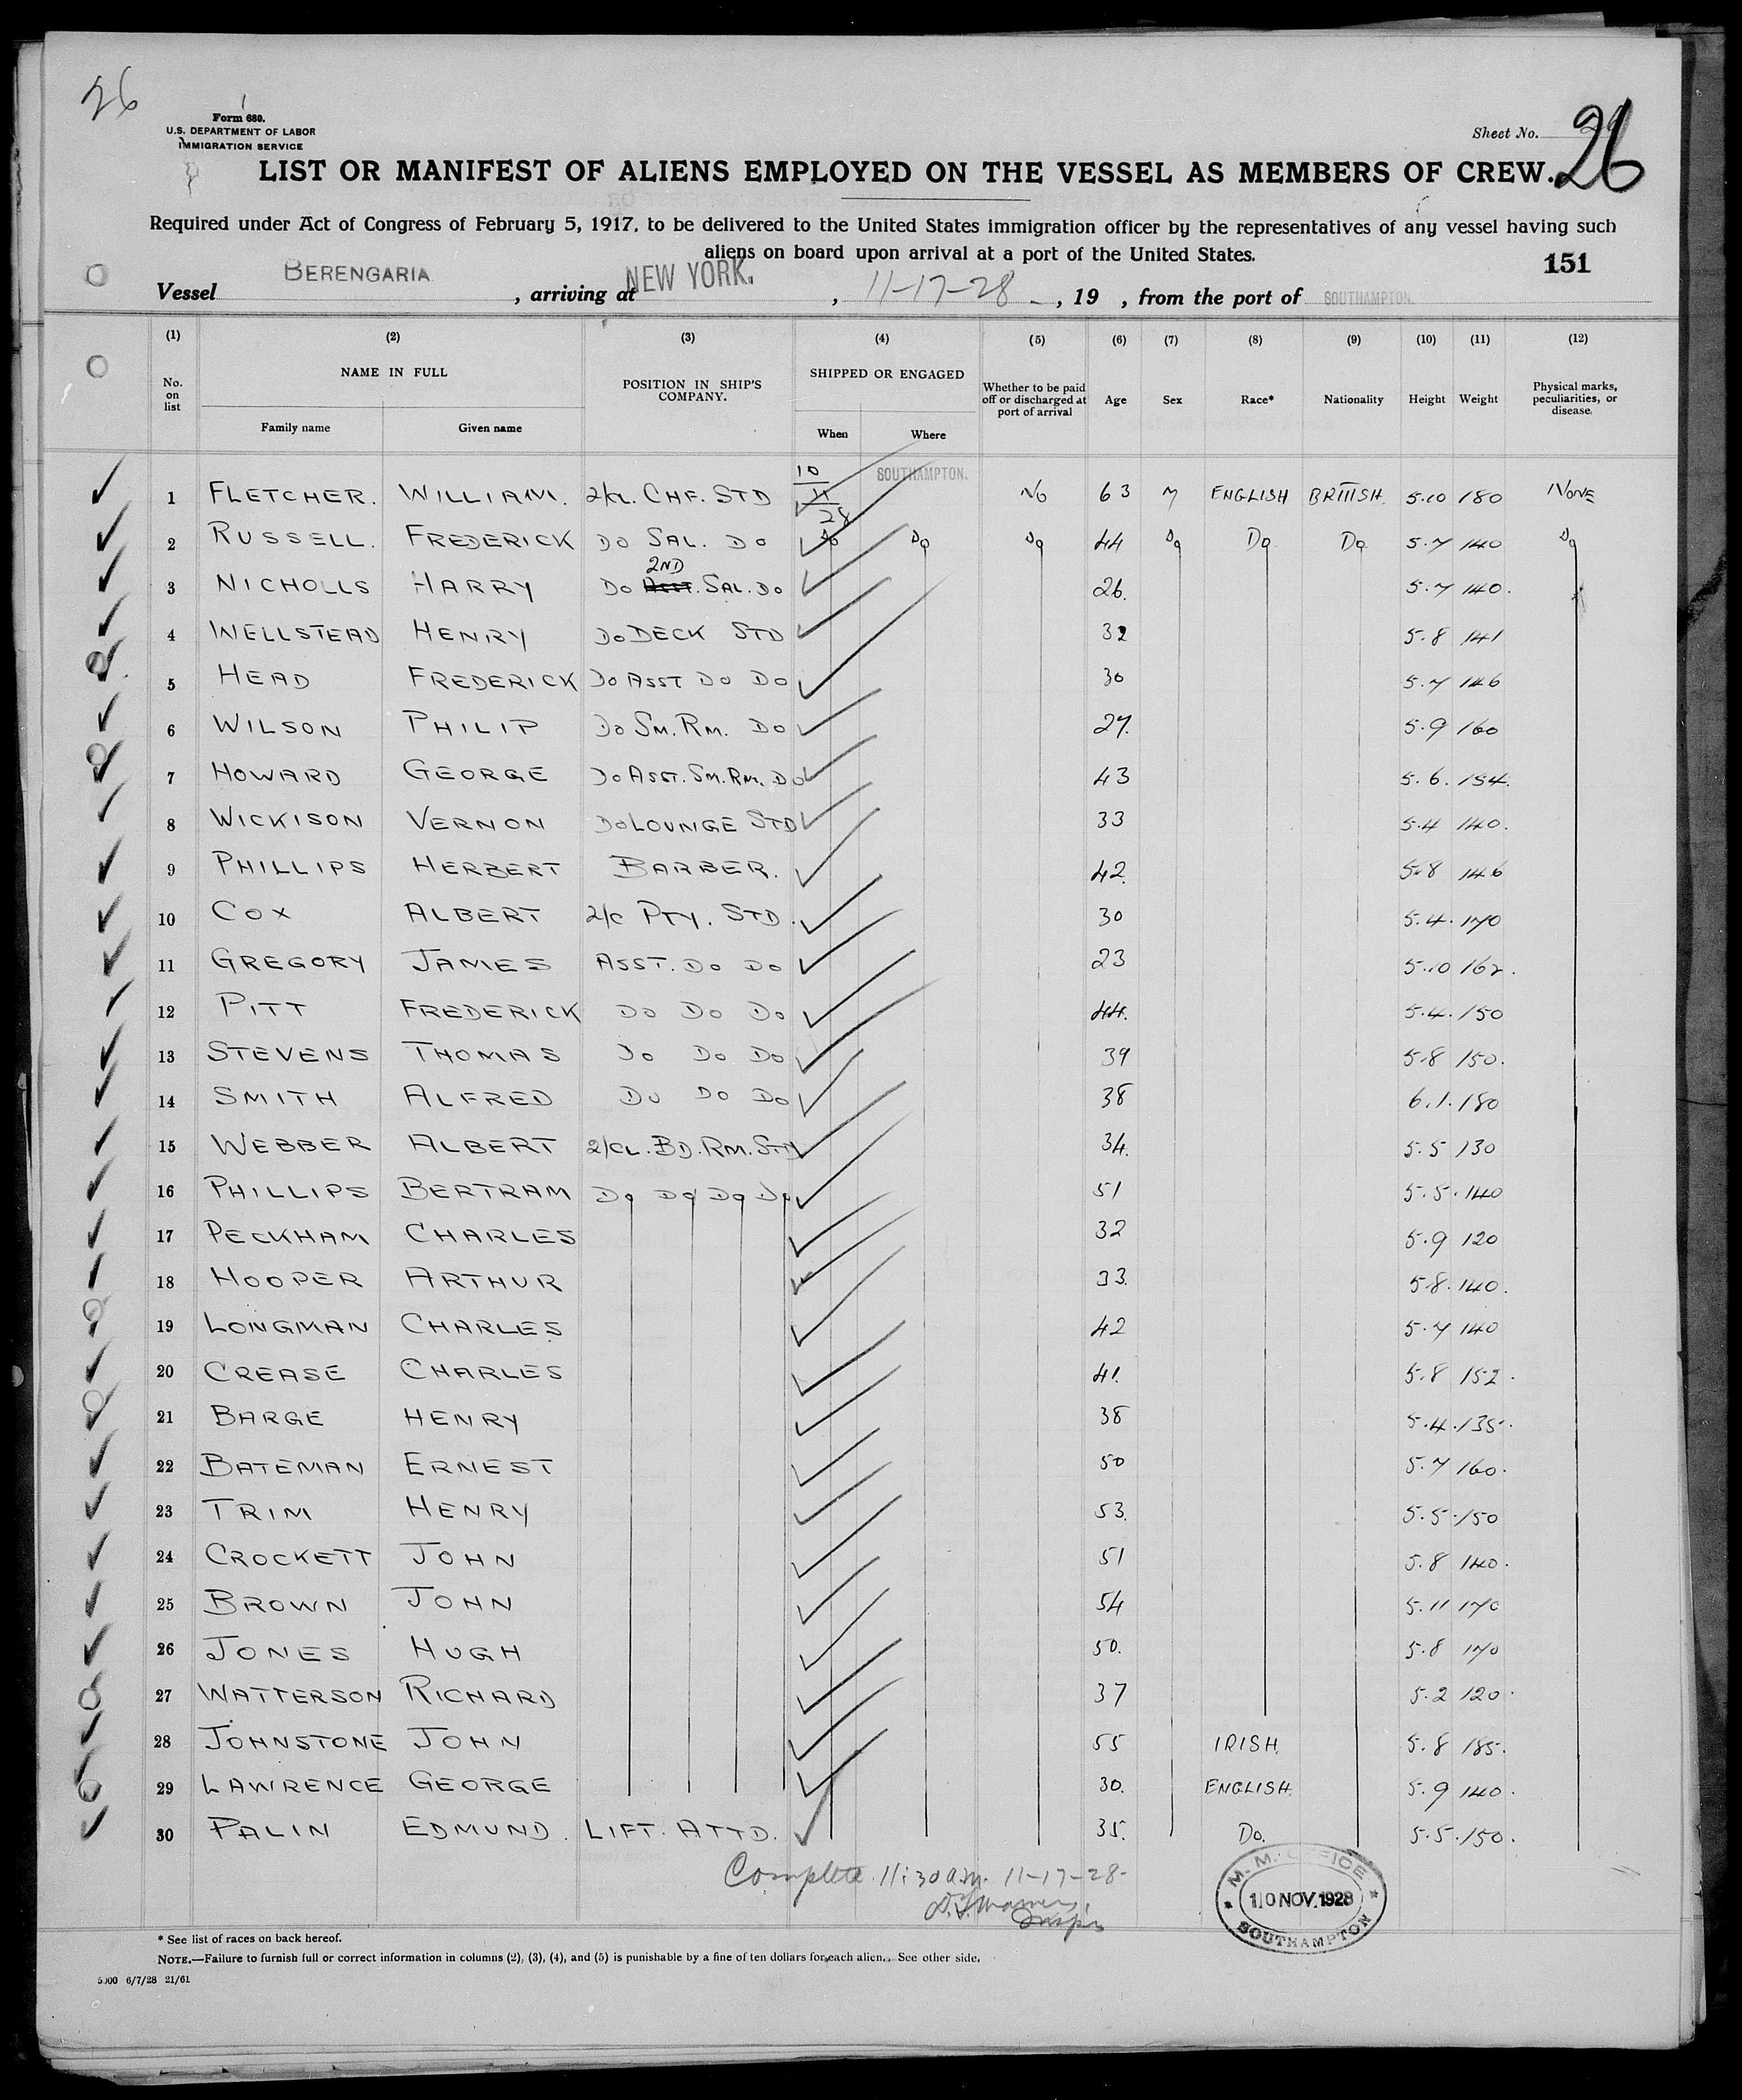 26
Form 680.
U.S. DEPARTMENT OF LABOR
IMMIGRATION SERVICE
Sheet No. 26
LIST OR MANIFEST OF ALIENS EMPLOYED ON THE VESSEL AS MEMBERS OF CREW.
Required under Act of Congress of February 5, 1917, to be delivered to the United States immigration officer by the representatives of any vessel having such
aliens on board upon arrival at a port of the United States.
151
Vessel BERENGARIA, arriving at NEW YORK., 11-17-28, 19 , from the port of SOUTHAMPTON.
(1) (2) (3) (4) (5) (6) (7) (8) (9) (10) (11) (12)
No. on list NAME IN FULL POSITION IN SHIP'S COMPANY. SHIPPED OR ENGAGED Whether to be paid off or discharged at port of arrival Age Sex Race* Nationality Height Weight Physical marks, peculiarities, or disease.
Family name Given name When Where
1 FLETCHER. WILLIAM. 2/CL. CHF. STD 10 11 28 SOUTHAMPTON. NO 63 M ENGLISH BRITISH. 5.10 180 NONE
2 RUSSELL. FREDERICK DO SAL. DO DO DO DO 44 DO DO DO 5.7 140 DO
3 NICHOLLS HARRY DO 2ND ASST. SAL. DO 26. 5.7 140.
4 WELLSTEAD HENRY DO DECK STD 32 5.8 141
5 HEAD FREDERICK DO ASST DO DO 30 5.7 146
6 WILSON PHILIP DO SM. RM. DO 27. 5.9 160
7 HOWARD GEORGE DO ASST. SM. RM. DO 43 5.6. 154.
8 WICKISON VERNON DO LOUNGE STD 33 5.4 140.
9 PHILLIPS HERBERT BARBER. 42. 5.8 146
10 COX ALBERT 2/C PTY. STD. 30 5.4. 170
11 GREGORY JAMES ASST. DO DO 23 5.10 162.
12 PITT FREDERICK DO DO DO 44. 5.4. 150
13 STEVENS THOMAS DO DO DO 39 5.8 150.
14 SMITH ALFRED DO DO DO 38 6.1. 180
15 WEBBER ALBERT 2/CL. BD. RM. STD 34. 5.5 130
16 PHILLIPS BERTRAM DO DO DO DO 51 5.5. 140
17 PECKHAM CHARLES 32 5.9 120
18 HOOPER ARTHUR 33. 5.8. 140.
19 LONGMAN CHARLES 42 5.7 140
20 CREASE CHARLES 41. 5.8 152.
21 BARGE HENRY 38 5.4. 135.
22 BATEMAN ERNEST 50 5.7 160.
23 TRIM HENRY 53. 5.5. 150
24 CROCKETT JOHN 51 5.8 140.
25 BROWN JOHN 54 5.11 170
26 JONES HUGH 50. 5.8 170
27 WATTERSON RICHARD 37 5.2 120.
28 JOHNSTONE JOHN 55 IRISH. 5.8 185.
29 LAWRENCE GEORGE 30. ENGLISH. 5.9 140.
30 PALIN EDMUND. LIFT. ATTD. 35. DO. 5.5. 150.
Complete 11:30 a.m. 11-17-28-
Insp.
M. M. OFFICE
10 NOV. 1928
SOUTHAMPTON
* See list of races on back hereof.
NOTE.—Failure to furnish full or correct information in columns (2), (3), (4), and (5) is punishable by a fine of ten dollars for each alien. See other side.
5000 6/7/28 21/61